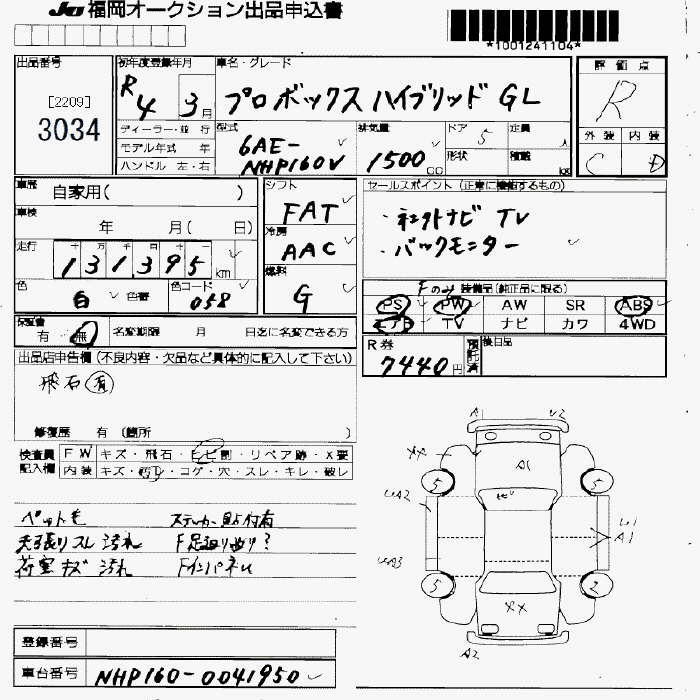 JU 福岡オークション出品申込書
*1001241104*
出品番号
[2209]
3034
初年度登録年月
R4 3月
車名・グレード
プロボックスハイブリッド GL
評価点
R
外装 内装
C D
ディーラー・並行
モデル年式 年
ハンドル 左・右
型式
6AE-
NHP160V
排気量
1500
cc
ドア
5
定員
人
形状
積載
kg
車歴
自家用( )
車検
年 月( 日)
走行
十 万 千 百 十 一
131395 km
色
白
色替
色コード
058
シフト
FAT
冷房
AAC
燃料
G
セールスポイント (正常に機能するもの)
・ネクストナビ TV
・バックモニター
Fのみ 装備品(純正品に限る)
PS PW AW SR ABS
エアB TV ナビ カワ 4WD
保証書
有 無
名変期限 月 日迄に名変できる方
R券
7440円
預託済
後日品
出品店申告欄 (不良内容・欠品など具体的に記入して下さい)
飛石 有
修復歴 有 (箇所 )
検査員記入欄
FW キズ・飛石・ヒビ割・リペア跡・X要
内装 キズ・汚れ・コゲ・穴・スレ・キレ・破レ
ペット毛 ステッカー貼付有
天張りスレ 汚れ F足廻り曲り?
荷室キズ 汚れ FインパネU
A1 U2
XX
A1
5 5
UA2
U1
A1
UA3
5 2
XX
A2
登録番号
車台番号 NHP160-0041950